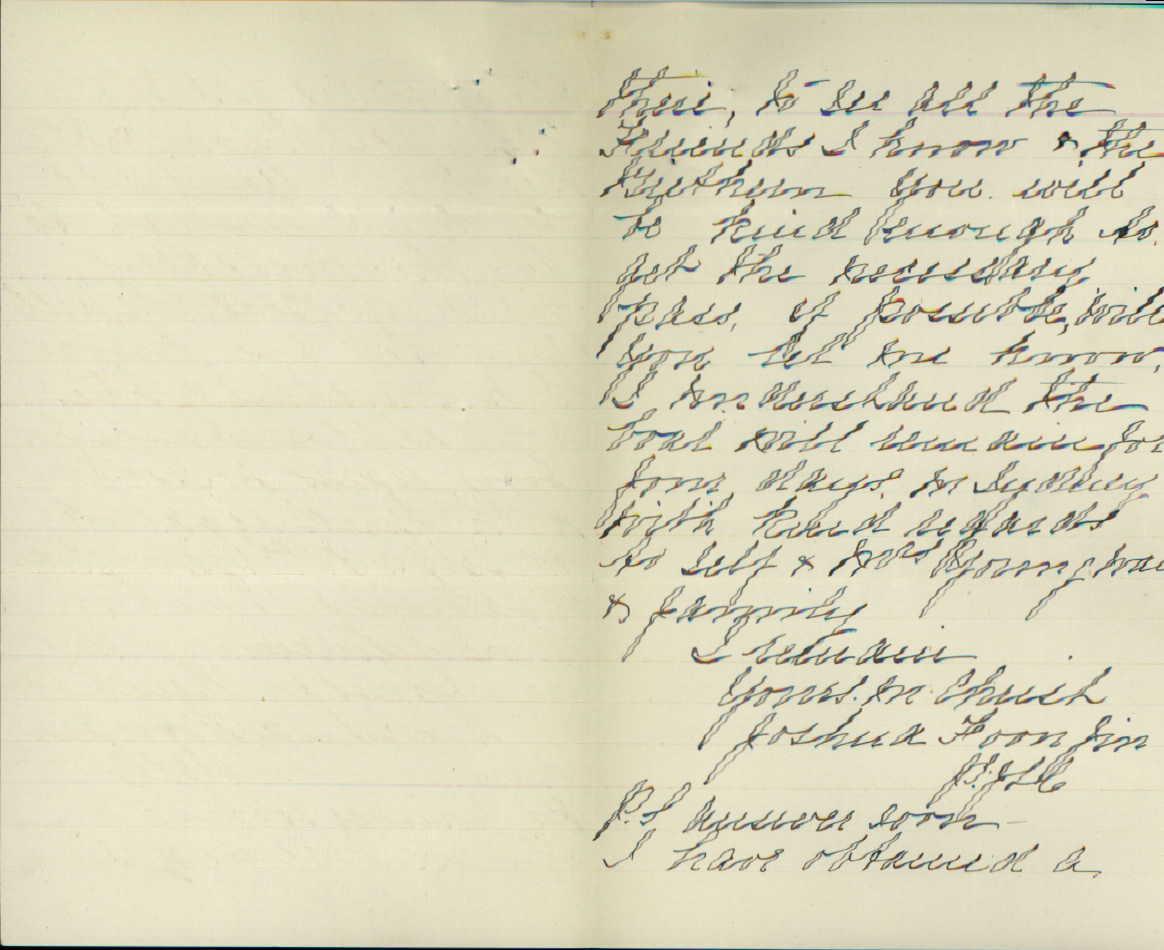 there, to see all the
Friends I know & the
Brethern you will
be kind enough to
get the necessary
pass, if possible, will
you let me know,
I understand the
boat will remain for
four days in Sydney
with kind regards
to self & Mrs Young wai
& family
I remain
Yours in Christ
Joshua Foon Jin
P.S answer soon
I have obtained a